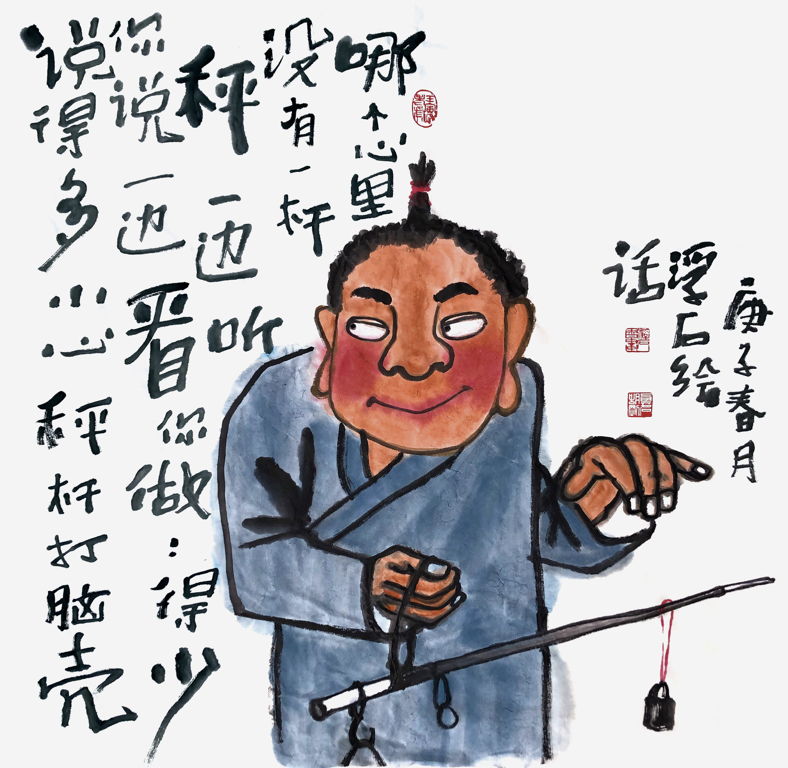 哪个心里
没有一杆
秤一边听
你说一边看你做:得少
说得多小心秤杆打脑壳
庚子春月
浮石绘
话